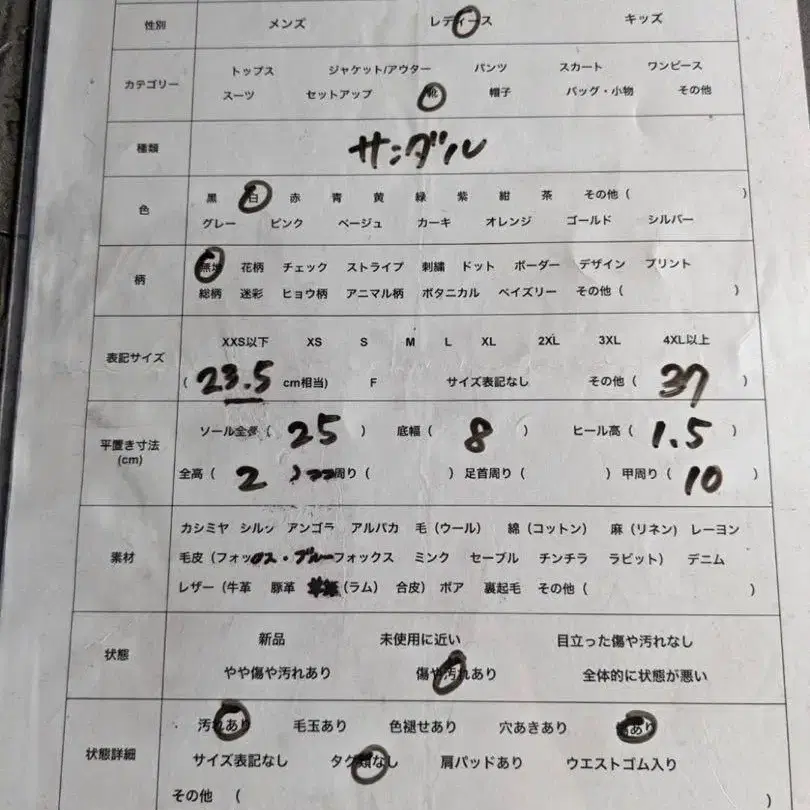 性別 メンズ レディース キッズ
カテゴリー トップス ジャケット/アウター パンツ スカート ワンピース
スーツ セットアップ 靴 帽子 バッグ・小物 その他
種類 サンダル
色 黒 白 赤 青 黄 緑 紫 紺 茶 その他 ( )
グレー ピンク ベージュ カーキ オレンジ ゴールド シルバー
柄 無地 花柄 チェック ストライプ 刺繍 ドット ボーダー デザイン プリント
総柄 迷彩 ヒョウ柄 アニマル柄 ボタニカル ペイズリー その他 ( )
表記サイズ XXS以下 XS S M L XL 2XL 3XL 4XL以上
( 23.5 cm相当) F サイズ表記なし その他 ( 37 )
平置き寸法 (cm) ソール全長 ( 25 ) 底幅 ( 8 ) ヒール高 ( 1.5 )
全高 ( 2 周り ( ) 足首周り ( ) 甲周り ( 10 )
素材 カシミヤ シルク アンゴラ アルパカ 毛 (ウール) 綿 (コットン) 麻 (リネン) レーヨン
毛皮 (フォックス・ブルーフォックス ミンク セーブル チンチラ ラビット) デニム
レザー (牛革 豚革 (ラム) 合皮) ボア 裏起毛 その他 ( )
状態 新品 未使用に近い 目立った傷や汚れなし
やや傷や汚れあり 傷や汚れあり 全体的に状態が悪い
状態詳細 汚れあり 毛玉あり 色褪せあり 穴あきあり あり
サイズ表記なし タグ類なし 肩パッドあり ウエストゴム入り
その他 (